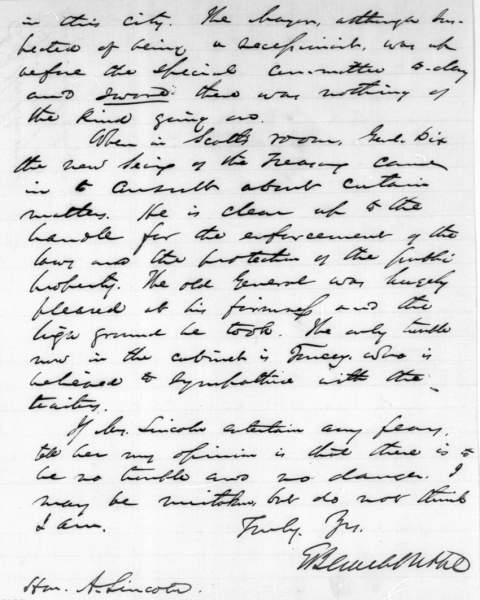 in this city. The Mayor, although sus-
pected of being a secessionist, was up
before the special committee to-day
and swore there was nothing of
the kind going on.
When in Scott's room, Genl. Dix
the new Secy of the Treasury came
in to consult about certain
matters. He is clear up to the
handle for the enforcement of the
laws and the protection of the public
property. The old General was hugely
pleased at his firmness and the
high ground he took. The only trouble
now in the cabinet is Toucey, who is
believed to sympathise with the
traitors.
If Mrs. Lincoln entertain any fears,
tell her my opinion is that there is to
be no trouble and no danger. I
may be mistaken, but do not think
I am.
Truly Yrs.
E B Washburne
Hon. A. Lincoln.